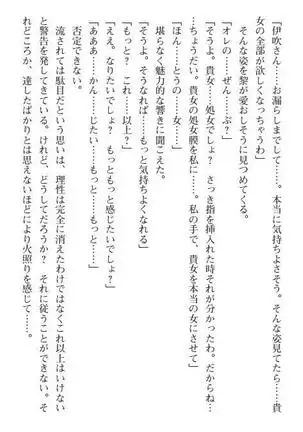 「伊吹さん……お漏らしまでして……。本当に気持ちよさそう。そんな姿見てたら……貴
女の全部が欲しくなっちゃうわ」
そんな姿を黎が愛おしそうに見つめてくる。
「オレの……ぜん……ぶ？」
「そうよ。貴女……処女でしょ？　さっき指を挿入れた時それが分かったわ。だからね…
…ちょうだい。貴女の処女膜を私に……。私の手で、貴女を本当の女にさせて」
「ほん……とうの……女……」
堪らなく魅力的な響きに聞こえた。
「そうよ。そうなれば……もっと気持ちよくなれる」
「もっと？　これ……以上？」
「ええ。なりたいでしょ？　もっともっと感じたいでしょ？」
「あああ……かん……じたい……もっと……もっと……」
否定できない。
流されては駄目だという思いは、理性は完全に消えたわけではなくこれ以上はいけない
と警告を発してきている。けれど、どうしてだろうか？　それに従うことができない。そ
れどころか、達したばかりとは思えないほどにより火照りを感じて……。